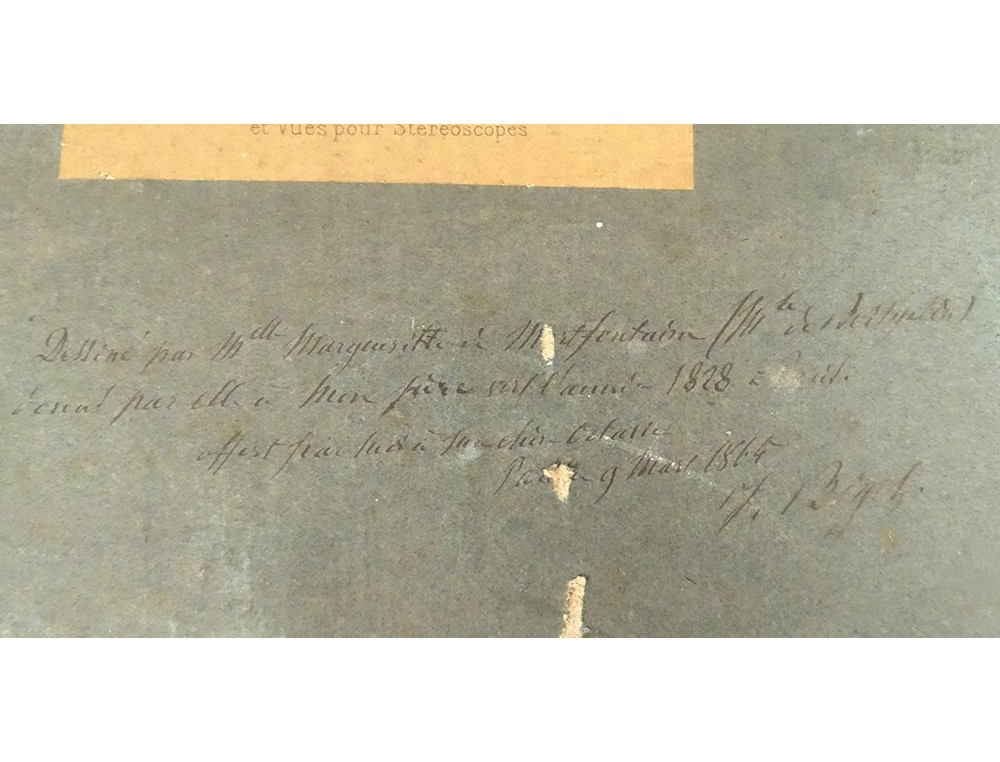 et Vues pour Stéréoscopes
Dessiné par Melle Margueritte de Mortfontaine (Mise de
donné par elle à mon père vers l'année 1828 à Paris.
offert par moi à ma chère Octavie
Paris 9 Mars 1865